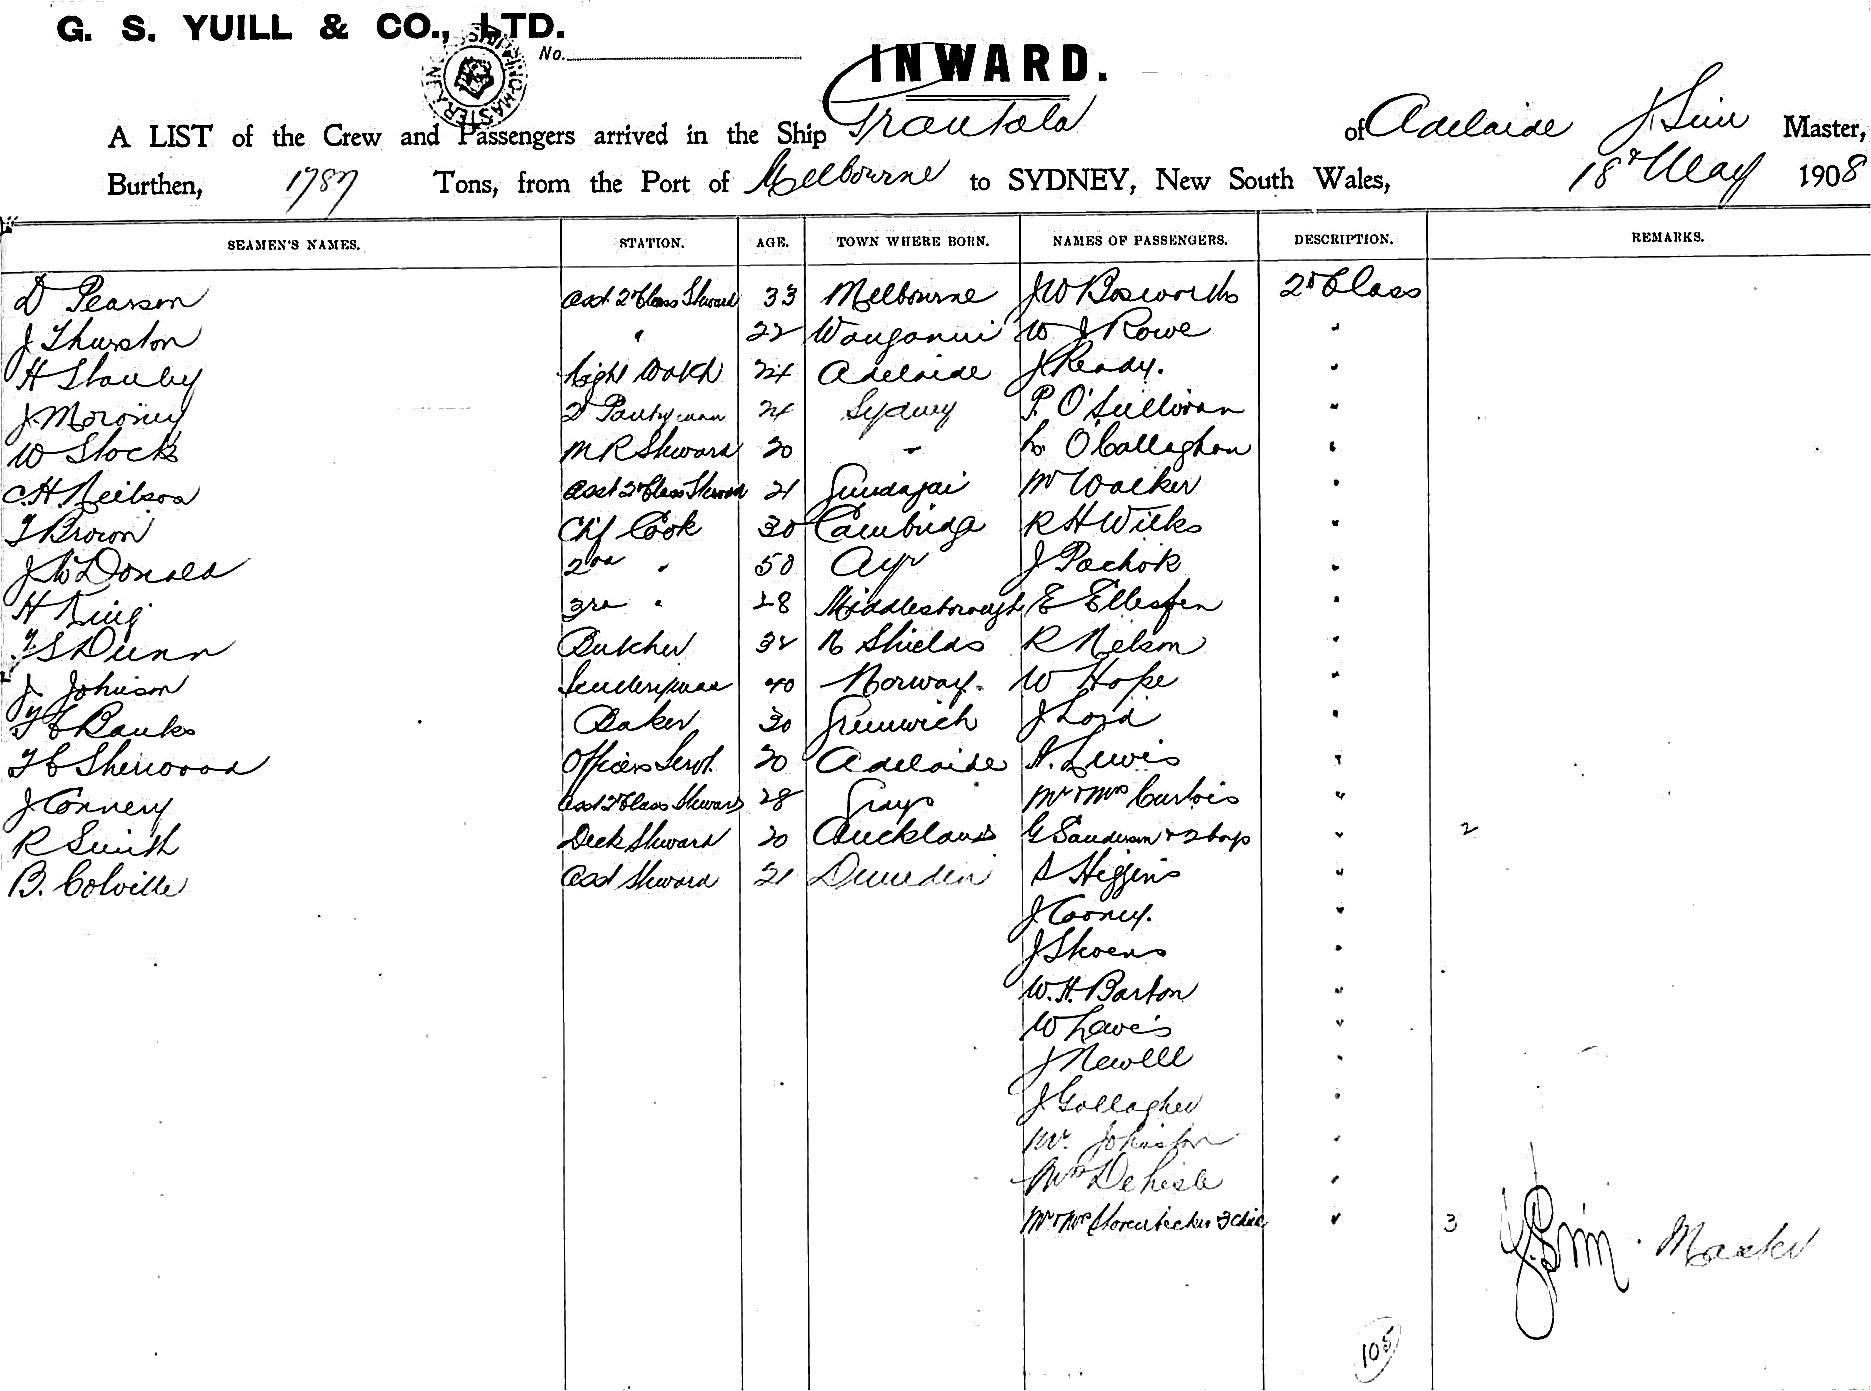 G. S. YUILL & CO., LTD.
No.
INWARD.
A LIST of the Crew and Passengers arrived in the Ship Grantala of Adelaide J Sim Master,
Burthen, 1787 Tons, from the Port of Melbourne to SYDNEY, New South Wales, 18th May 1908
SEAMEN'S NAMES. STATION. AGE. TOWN WHERE BORN. NAMES OF PASSENGERS. DESCRIPTION. REMARKS.
D Pearson Asst 2nd Class Steward 33 Melbourne J W Bosworth 2nd Class
J Thurston " 22 Wanganui W J Rowe "
H Stanby Night Watch 24 Adelaide J Ready. "
J. Moroney 2 Pantryman 24 Sydney P. O'Sullivan "
W Stock M R Steward 20 " L O'Callaghan "
C H Neilson Asst 2nd Class Steward 21 Gundagai Mr Walker "
T Brown Chf Cook 30 Cambridge R H Wilks "
J McDonald 2nd " 50 Ayr J Pachok "
H King 3rd " 28 Middlesborough E Ellesfen "
T S Dunn Butcher 32 N Shields R Nelson "
J. Johnson 40 Norway. W Hope "
T C Banks Baker 30 Greenwich J Lord "
T C Sherwood Officers Servt. 20 Adelaide H. Lewis "
J Connery Asst 2nd Class Steward 28 Grays Mr & Mrs Curtois "
R Smith Deck Steward 20 Auckland G Sanderson & 2 boys " 2
B. Colville Asst Steward 21 Dunedin A Higgins "
J Cooney. "
J Skoens "
W. H. Barton "
W Laves "
J Newell "
J Gallagher "
Mr. Johnston "
Mrs Dehisle "
Mr & Mrs 3 chil "  3
J. Sim. Master
105